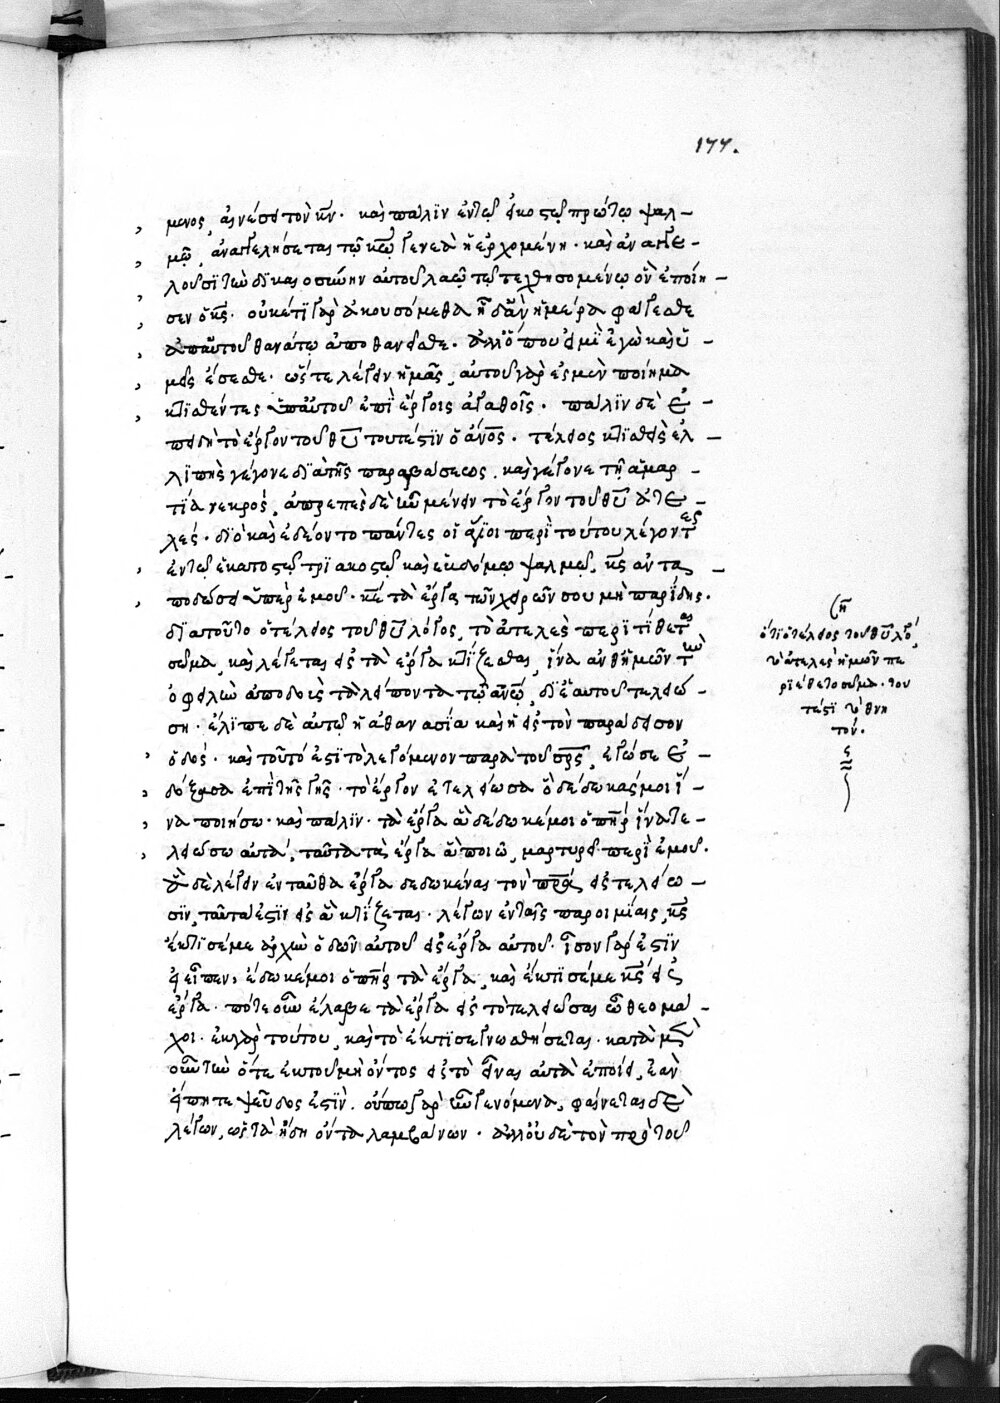 177.
μενος, αἰνέσει τὸν κ̅ν̅. καὶ πάλϊν ἐν τῷ εἰκοστῷ πρώτῳ ψαλ–
μῷ, ἀναγγελήσεται τῷ κ̅ω̅ γενεὰ ἡ ἐρχομένη. καὶ ἀναγγε–
λοῦσϊ τὴν δικαιοσύνην αὐτοῦ λαῷ τῷ τεχθησομένῳ ὃν ἐποίη–
σεν ὁ κ̅ς̅. οὐκέτϊ γὰρ ἀκουσόμεθα ᾗ δ' ἂν ἡμέρα φάγεσθε
ἀπ' αὐτοῦ θανάτῳ ἀποθανεῖσθε. ἀλλ' ὅπου εἰμὶ ἐγὼ καὶ ὑ–
μεῖς ἔσεσθε. ὥστε λέγειν ἡμᾶς, αὐτοῦ γάρ ἐσμεν ποίημα
κτϊσθέντες ὑπ' αὐτοῦ ἐπὶ ἔργοις ἀγαθοῖς. πάλϊν δὲ ἐ–
πειδὴ τὸ ἔργον τοῦ θ̅υ̅ τουτέστϊν ὁ ἄν̅ο̅ς̅. τέλειος κτϊσθεὶς ἐλ–
λϊπὴς γέγονε δϊὰ τῆς παραβάσεως. καὶ γέγονε τῇ ἁμαρ–
τίᾳ νεκρός, ἀπρεπὲς δὲ ἦν μένειν τὸ ἔργον τοῦ θ̅υ̅ ἀτε–
λές. δϊὸ καὶ ἐδέοντο πάντες οἱ ἅγϊοι περὶ τούτου λέγοντες
ἐν τῷ ἑκατοστῷ τρϊακοστῷ καὶ ἑβδόμῳ ψαλμῷ. κ̅ς̅ ἀντα–
ποδώσει ὑπὲρ ἐμοῦ. κ̅ε̅ τὰ ἔργα τῶν χειρῶν σου μὴ παρΐδῃς.
δϊὰ τοῦτο ὁ τέλειος τοῦ θ̅υ̅ λόγος, τὸ ἀτελὲς περιτίθεται
σῶμα, καὶ λέγεται εἰς τὰ ἔργα κτΐζεσθαι, ἵνα ἀνθ' ἡμῶν τὴν
ὀφειλὴν ἀποδοὺς τὰ λείποντα τῷ ἀν̅ω̅, δϊ' ἑαυτοῦ τελειώ–
σῃ. ἔλιπε δὲ αὐτῷ ἡ ἀθανασία καὶ ἡ εἰς τὸν παράδεισον
ὁδός. καὶ τοῦτό ἐστϊ τὸ λεγόμενον παρὰ τοῦ σ̅ρ̅ς̅, ἐγώ σε ἐ–
δόξασα ἐπὶ τῆς γῆς. τὸ ἔργον ἐτελείωσα ὃ δέδωκάς μοι ἵ–
να ποιήσω. καὶ πάλϊν. τὰ ἔργα ἃ δέδωκέ μοι ὁ π̅η̅ρ̅ ἵνα τε–
λειώσω αὐτά, ταῦτα τὰ ἔργα ἃ ποιῶ, μαρτυρεῖ περὶ ἐμοῦ.
ἃ δὲ λέγειν ἐνταῦθα ἔργα δεδωκέναι τὸν π̅ρ̅α̅ εἰς τελείω–
σϊν, ταῦτα ἐστὶν εἰς ἃ κτΐζεται. λέγων ἐν ταῖς παροιμίαις, κ̅ς̅
ἔκτϊσέ με ἀρχὴν ὁδῶν αὐτοῦ εἰς ἔργα αὐτοῦ. ἴσον γάρ ἐστϊν
εἰπεῖν, ἔδωκέ μοι ὁ π̅η̅ρ̅ τὰ ἔργα, καὶ ἔκτϊσέ με κ̅ς̅ εἰς
ἔργα. πότε οὖν ἔλαβε τὰ ἔργα εἰς τὸ τελειῶσαι ὦ θεομά–
χοι. ἐκ γὰρ τούτου, καὶ τὸ ἔκτϊσε γνωσθήσεται. κατὰ μὲν
οὖν τὴν ὅτε ἐκ τοῦ μὴ ὄντος εἰς τὸ εἶναι αὐτὰ ἐποίει, ἐὰν
εἴπητε ψεῦδος ἐστίν. οὔπω γὰρ ἦν γενόμενα. φαίνεται δὲ
λέγων, ὡς τὰ ἤδη ὄντα λαμβάνων. ἀλλ' οὐδὲ τὸν πρὸ τοῦ
ση
ὅτϊ ὁ τέλειος τοῦ θ̅υ̅ λό,
τὸ ἀτελὲς ἡμῶν πε
ριέθετο σῶμα. του
τέστϊ τὸ θνη
τόν.